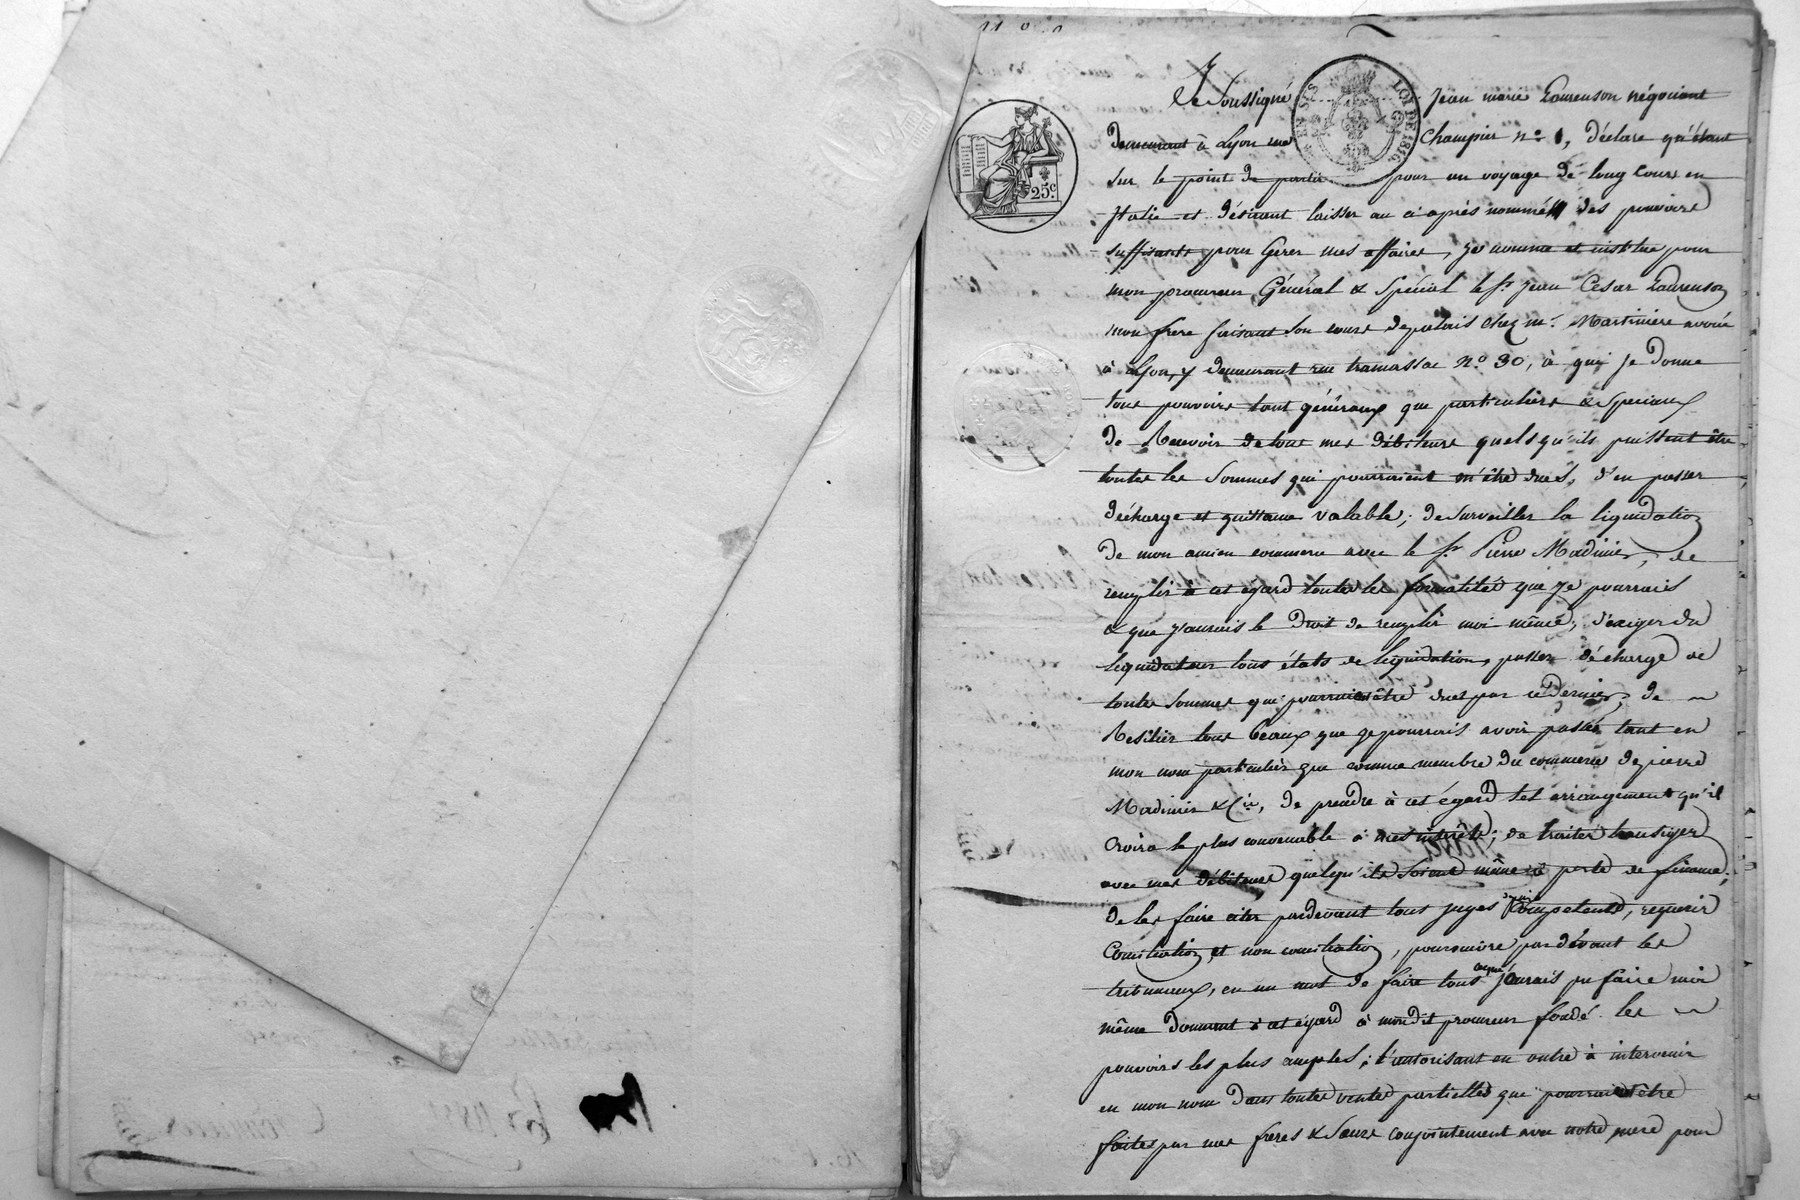 Je Soussigné Jean marie Laurenson négociant
Demeurant à Lyon rue Champier n° 1, déclare qu'étant
sur le point de partir pour un voyage de long Cours en
Italie et désirant laisser au ci après nommé des pouvoirs
suffisants pour Gerer mes affaires, je nomme et institue pour
mon procureur Général & Spécial le Sr. jean Cesar Laurenson
mon frere faisant son cours de palais chez mr. Martiniere avoué
à Lyon, y demeurant rue tramassac n° 30, à qui je donne
tous pouvoirs tant généraux que particuliers & Speciaux
de Recevoir de tous mes débiteurs quels qu'ils puissent être
toutes les Sommes qui pourraient m'être dues, d'en passer
décharge et quittance valable; de Surveiller la liquidation
de mon ancien commerce avec le Sr Pierre Madinier, de
remplir à cet égard toutes les formalités que je pourrais
& que j'aurais le Droit de remplir moi même; d'exiger du
liquidateur tous états de liquidation, passer décharge de
toutes Sommes qui pourraient être dues par ce dernier, de
Resilier tous beaux que je pourrais avoir passés tant en
mon nom particulier que comme membre du commerce de pierre
Madinier & Cie, de prendre à cet égard tel arrangement qu'il
croira le plus convenable à mes intérêts; de traiter transiger
avec mes débiteurs quelqu'ils Soient même à perte de finance;
de les faire citer pardevant tous juges Compétents, requerir
Conciliation et non conciliation, poursuivre par dévant les
tribunaux, en un mot de faire tous ce que j'aurais pu faire moi
même donnant à cet égard à mondit procureur fondé les
pouvoirs les plus amples; l'autorisant en outre à intervenir
en mon nom dans toutes ventes partielles que pourraient être
faites par mes freres & Sœurs conjointement avec notre mere pour
LOI DE 1816
25c.